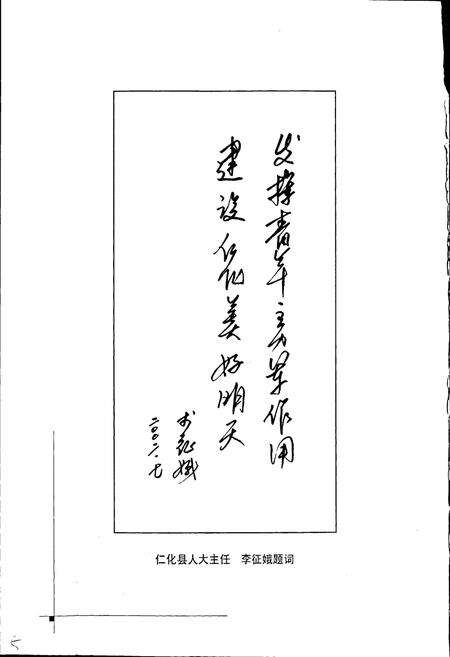 发挥青年主力军作用
建设仁化美好明天
李征娥
二〇〇二.七
仁化县人大主任 李征娥题词
5